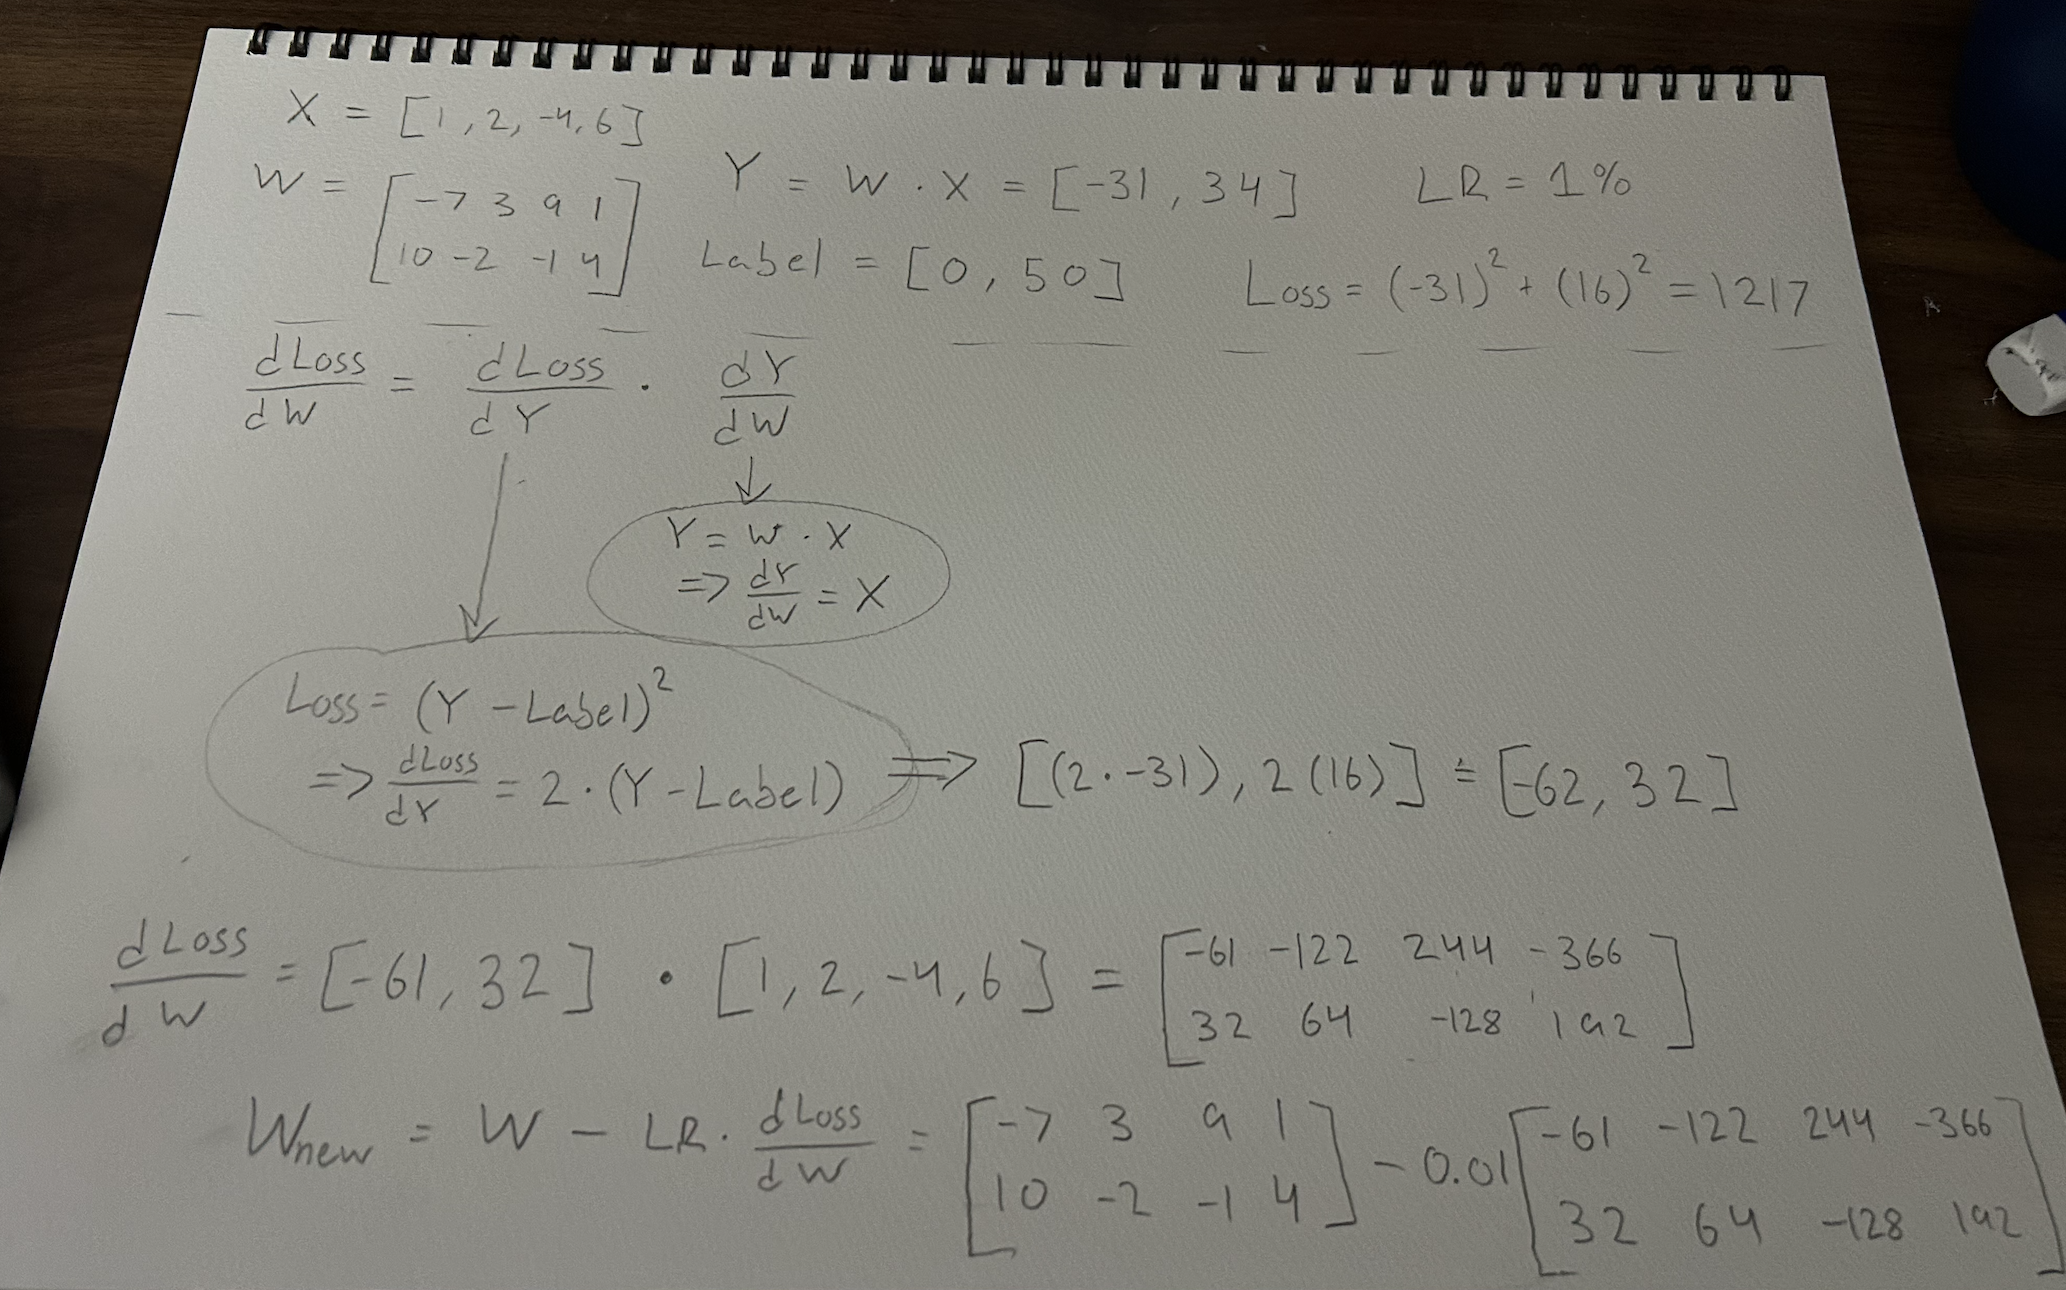 X = [1, 2, -4, 6]
W = [-7 3 9 1
10 -2 -1 4]
Y = W · X = [-31, 34]
LR = 1%
Label = [0, 50]
Loss = (-31)² + (16)² = 1217
dLoss/dW = dLoss/dY · dY/dW
Y = W · X
=> dY/dW = X
Loss = (Y - Label)²
=> dLoss/dY = 2·(Y - Label) => [(2·-31), 2(16)] = [-62, 32]
dLoss/dW = [-61, 32] · [1, 2, -4, 6] = [-61 -122 244 -366
32 64 -128 192]
Wnew = W - LR · dLoss/dW = [-7 3 9 1
10 -2 -1 4] - 0.01 [-61 -122 244 -366
32 64 -128 192]